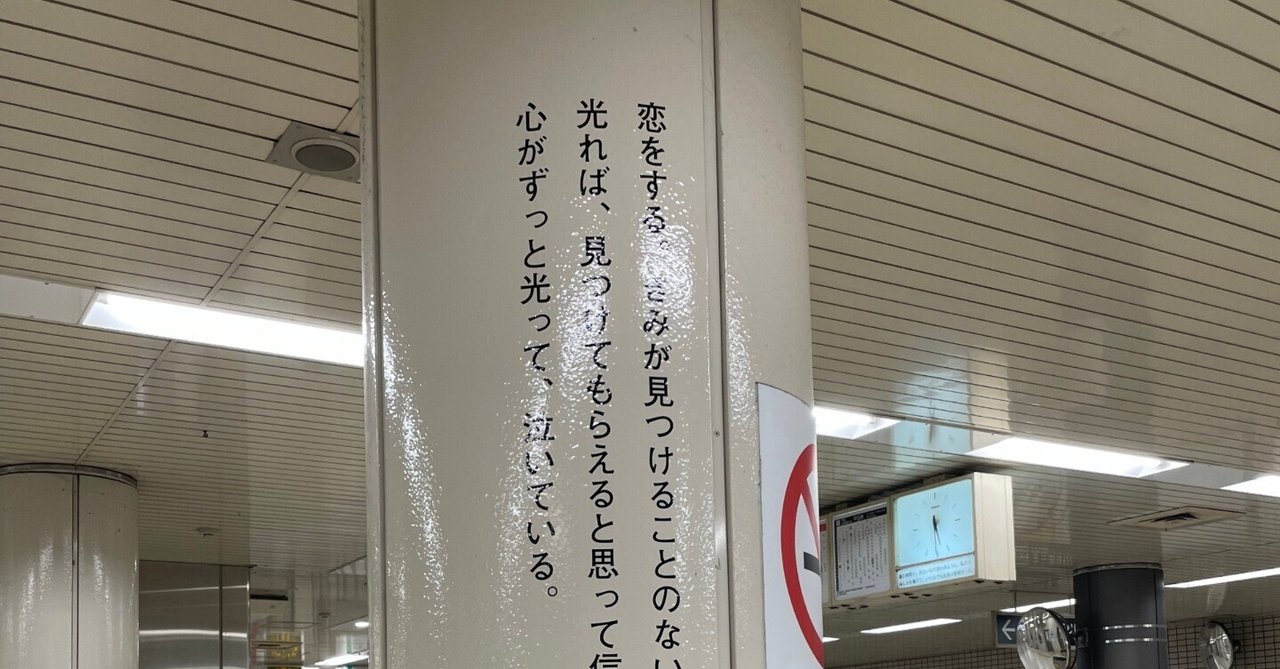 恋をする。きみが見つけることのない
光れば、見つけてもらえると思って信
心がずっと光って、泣いている。